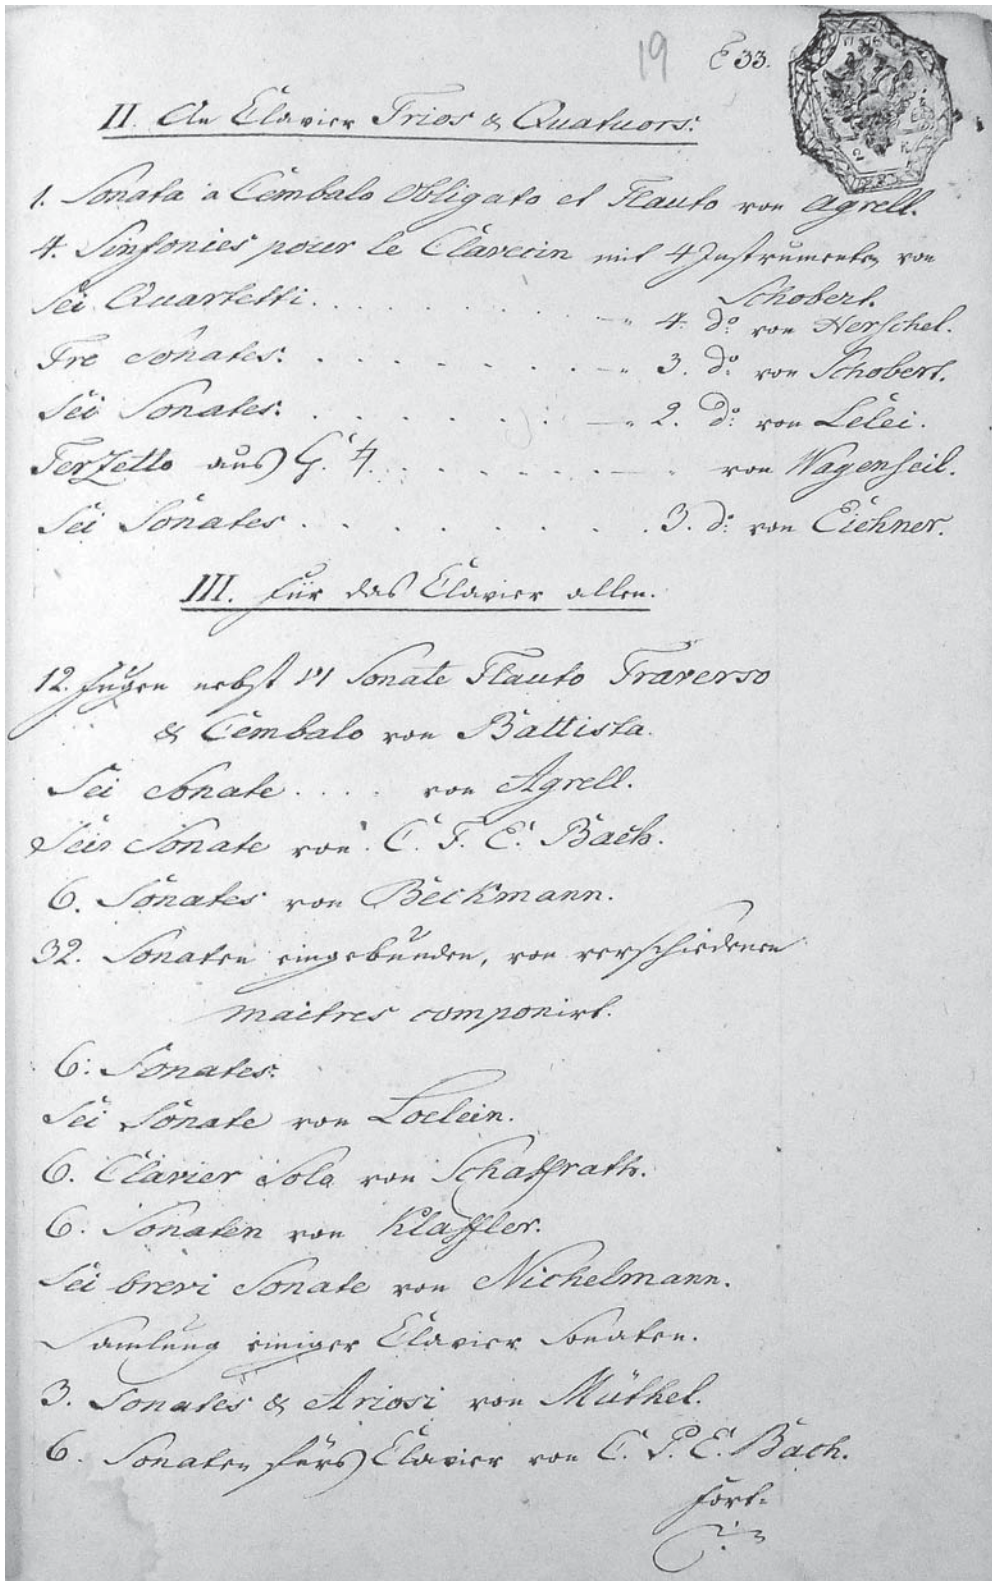 19 E 33.
II. An Clavier Trios & Quatuors.
1. Sonata a Cembalo Obligato et Flauto von Agrell.
4. Sinfonies pour le Clavecin mit 4 Instrumenten von
Schobert.
Sei Quartetti. . . . . . . . . 4. do von Herschel.
Tre Sonates. . . . . . . . . 3. do von Schobert.
Sei Sonates. . . . . . . . . 2. do von Lelei.
Terzetto aus G. 4. . . . . . . . von Wagenseil.
Sei Sonates . . . . . . . . . 3. do von Eichner.
III. Für das Clavier allen.
12. Fugen nebst VI Sonate Flauto Traverso
& Cembalo von Battista.
Sei Sonate . . . . von Agrell.
Seis Sonate von C. F. E. Bach.
6. Sonates von Beckmann.
32. Sonaten eingebunden, von verschiedenen
maitres componirt.
6. Sonates.
Sei Sonate von Loelein.
6. Clavier Sola von Schaffrath.
6. Sonaten von Klaffler.
Sei brevi Sonate von Nichelmann.
Samlung einiger Clavier Sonaten.
3. Sonates & Ariosi von Müthel.
6. Sonaten fürs Clavier von C. P. E. Bach.
fort.